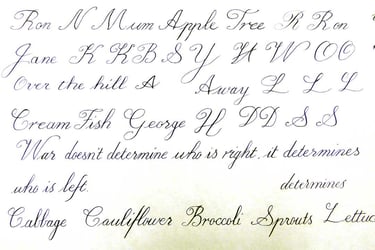 Ron N Mum Apple Tree R Ron
Jane K K B S Y H W O O
Over the hill A Away L L L
Cream Fish George H D D S S
War doesn't determine who is right, it determines
who is left. determines
Cabbage Cauliflower Broccoli Sprouts Lettuc